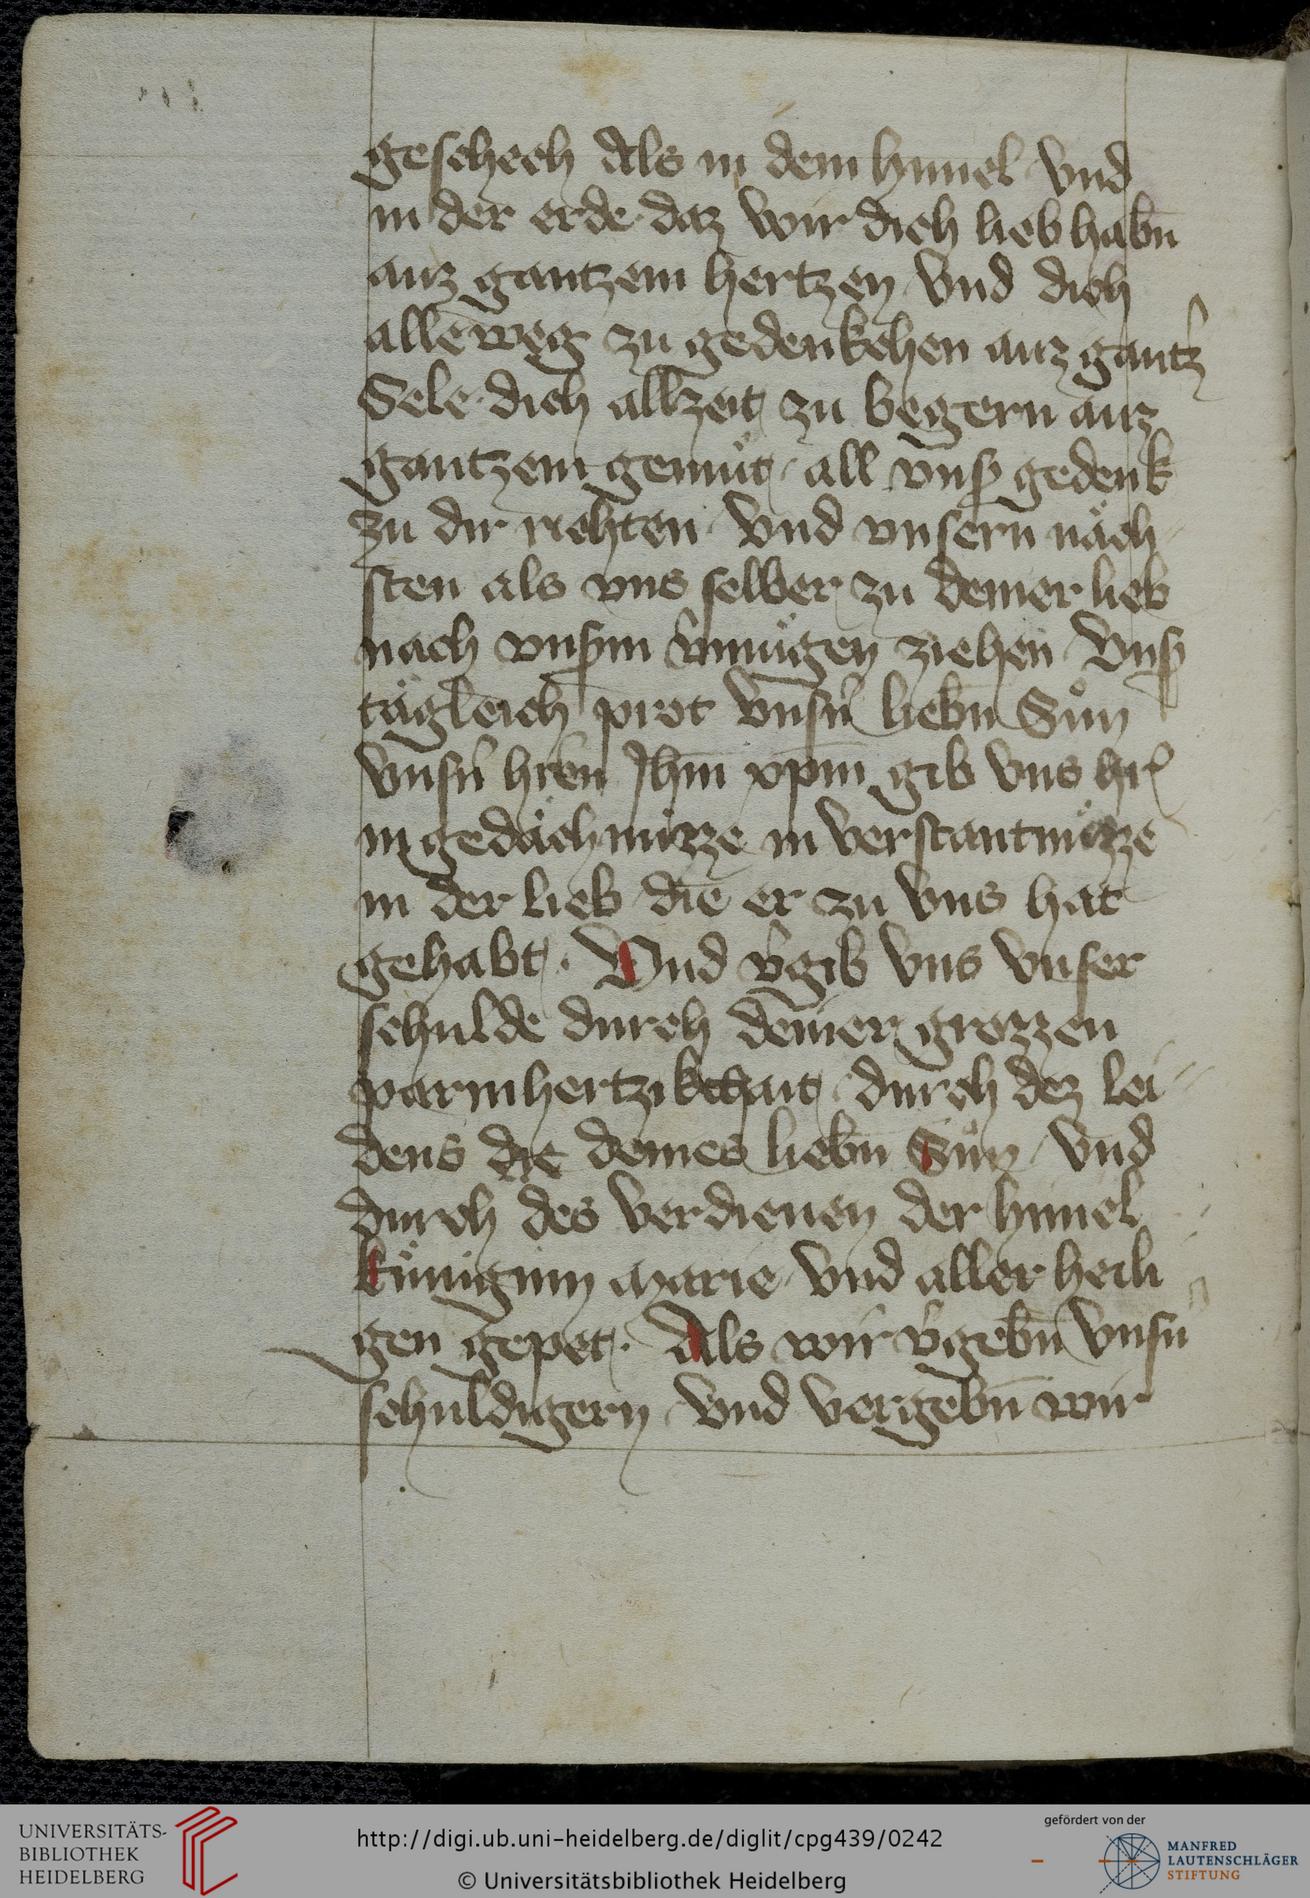 geschech Als in dem himel vnd
in der erde daz wir dich lieb habn̄
auz gantzem hertzen vnd dich
alleweg zu gedenkchen auz gantz̾
Sele dich allzeit zu begern auz
gantzem gemüt all vnsꝰ gedenk
zu dir richten vnd vnsern näch
sten als vns selber zu deiner lieb
nach vnsꝰm v̾mügen ziehen Vnsꝰ
tägleich prot vnsn̄ liebn̄ Sün
vnsn̄ hren̄ Jhm̄ xpm̄ gib vns hit̾
in gedächnüzze in verstantnüzze
in der lieb die er zu vns hat
gehabt. Vnd v̾gib vns vnser
schulde durch deiner grozzen
parmhertzikchait durch dez lei
dens die deines liebn̄ Sün vnd
durch des verdienen der himel
küniginn Marie vnd aller heili
gen gepet. Als wir v̾gebn̄ vnsn̄
schuldigern vnd vergebn̄ wir
UNIVERSITÄTS-
BIBLIOTHEK
HEIDELBERG
http://digi.ub.uni-heidelberg.de/diglit/cpg439/0242
© Universitätsbibliothek Heidelberg
gefördert von der
MANFRED
LAUTENSCHLÄGER
STIFTUNG